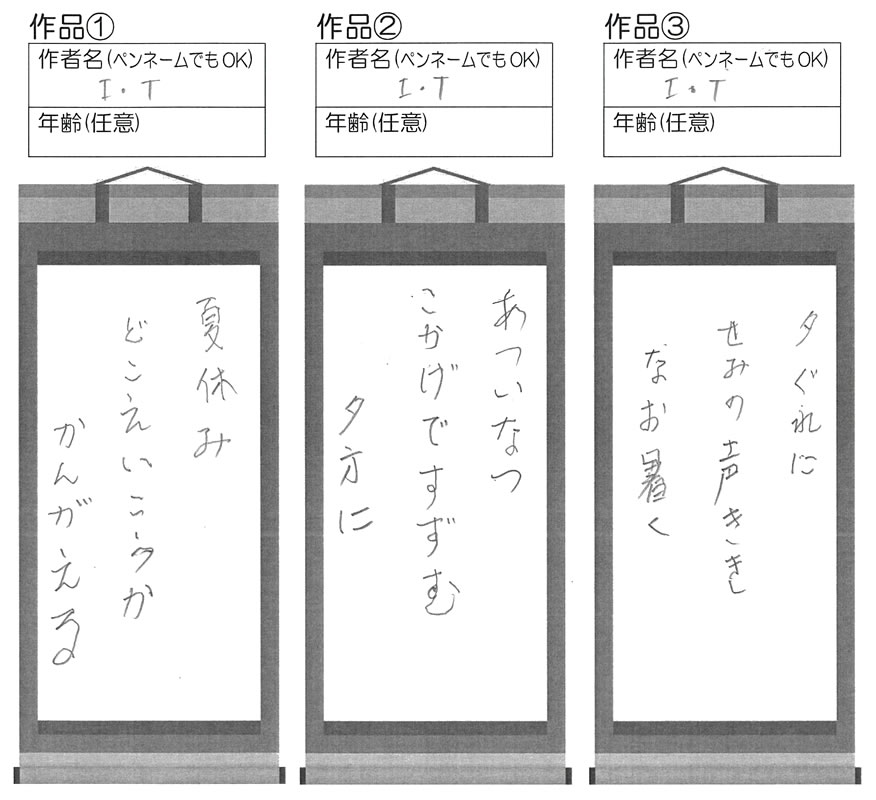 作品①
作者名(ペンネームでもOK)
I・T
年齢(任意)
夏休み
どこえいこうか
かんがえる
作品②
作者名(ペンネームでもOK)
I・T
年齢(任意)
あついなつ
こかげですずむ
夕方に
作品③
作者名(ペンネームでもOK)
I・T
年齢(任意)
夕ぐれに
せみの声きき
なお暑く